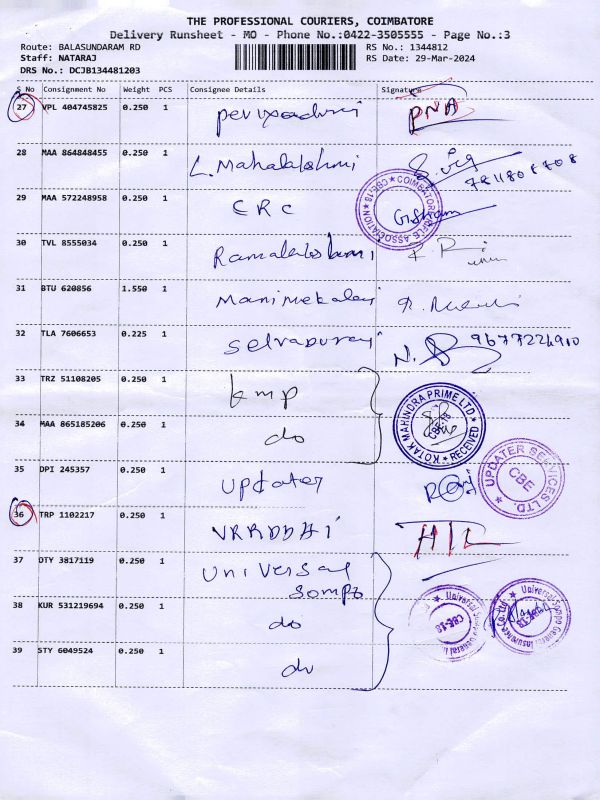 THE PROFESSIONAL COURIERS, COIMBATORE
Delivery Runsheet - MO - Phone No.:0422-3505555 - Page No.:3
Route: BALASUNDARAM RD RS No.: 1344812
Staff: NATARAJ RS Date: 29-Mar-2024
DRS No.: DCJB134481203
S No Consignment No Weight PCS Consignee Details Signature
27 VPL 404745825 0.250 1 PNA
28 MAA 864848455 0.250 1 L. Mahalakshmi
29 MAA 572248958 0.250 1 CRC
COIMBATORE RIFLE ASSOCIATION CBE-18
30 TVL 8555034 0.250 1 Ramalakshmi
31 BTU 620856 1.550 1 Manimekalai
32 TLA 7606653 0.225 1 Selvapuraj
33 TRZ 51108205 0.250 1 kmp
KOTAK MAHINDRA PRIME LTD RECEIVED
34 MAA 865185206 0.250 1 do
35 DPI 245357 0.250 1 Updater
UPDATER SERVICES LTD. CBE
36 TRP 1102217 0.250 1 VRRDDHI HIL
37 DTY 3817119 0.250 1 Universal
Sompo
38 KUR 531219694 0.250 1 do
Universal Sompo General Insurance Co. Ltd. CBE-18
39 STY 6049524 0.250 1 do